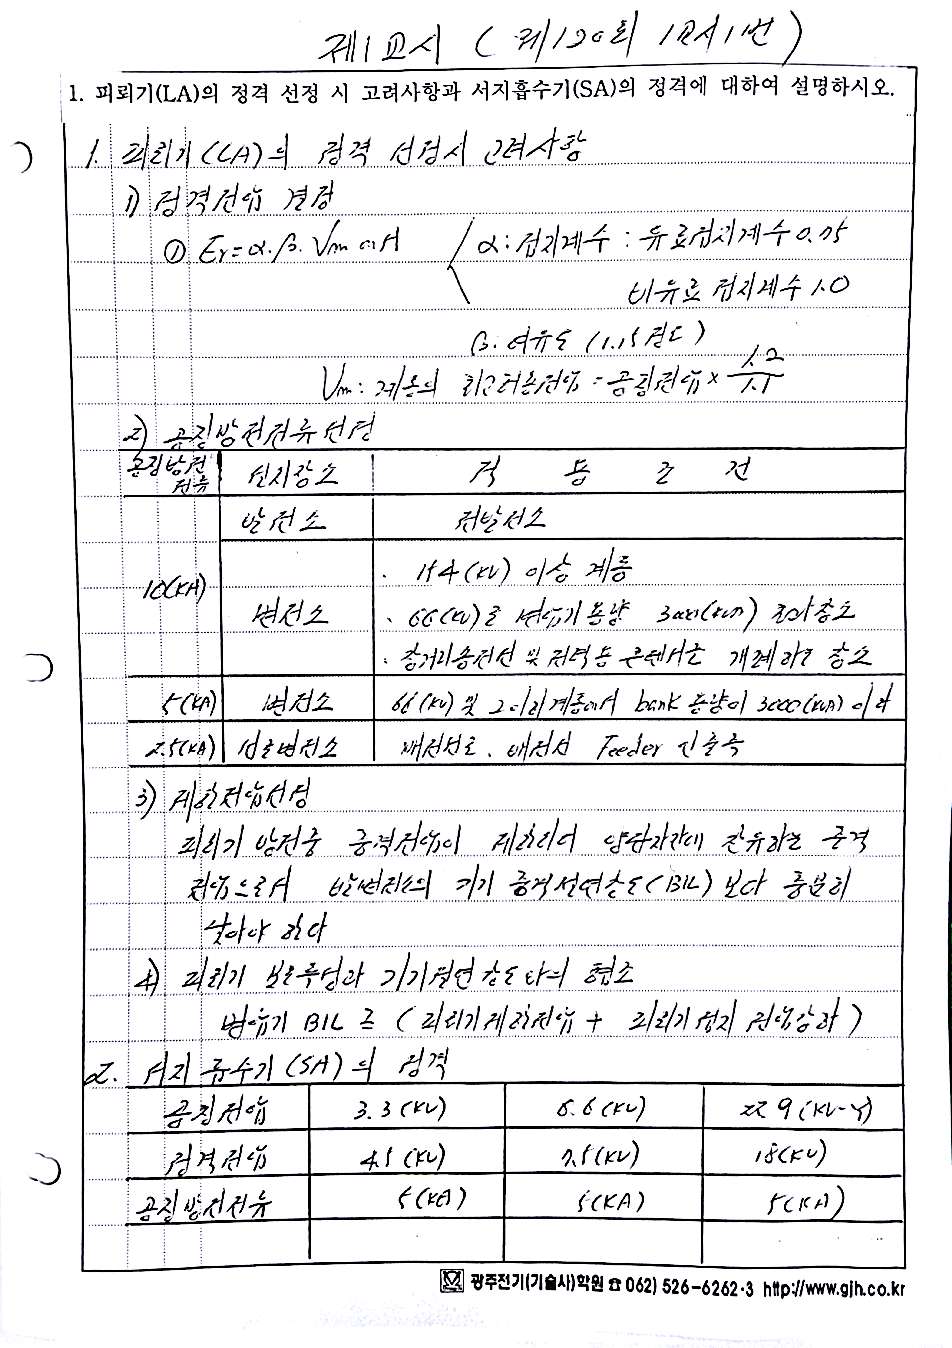 제1교시 (제120회 1교시1번)
1. 피뢰기(LA)의 정격 선정 시 고려사항과 서지흡수기(SA)의 정격에 대하여 설명하시오.
1. 피뢰기(LA)의 정격 선정시 고려사항
1) 정격전압 결정
① Er=α.β.Vm에서 α: 접지계수 : 유효접지계수 0.75
비유효 접지계수 1.0
β. 여유도 (1.15정도)
Vm: 계통의 최고허용전압 = 공칭전압 × 1.2/1.1
2) 공칭방전전류선정
공칭방전전류 설치장소 적 용 조 건
10(KA) 발전소 전발전소
변전소 . 154(KV) 이상 계통
. 66(KV)로 변압기용량 3000(KVA) 초과장소
. 장거리송전선 및 전력용 콘덴서를 개폐하는 장소
5(KA) 변전소 66(KV) 및 그이하계통에서 bank 용량이 3000(KVA) 이하
2.5(KA) 선로변전소 배전선로. 배전선 Feeder 인출측
3) 제한전압선정
피뢰기 방전중 충격전압이 제한되어 양단자간에 잔유하는 충격
전압으로서 발변전소의 기기 충격절연강도(BIL) 보다 충분히
낮아야 한다
4) 피뢰기 보호특성과 기기절연 강도와의 협조
변압기 BIL ≥ (피뢰기제한전압 + 피뢰기접지 전압강하)
2. 서지 흡수기 (SA)의 정격
공칭전압 3.3(KV) 6.6(KV) 22.9(KV-Y)
정격전압 4.5(KV) 7.5(KV) 18(KV)
공칭방전전류 5(KA) 5(KA) 5(KA)
광주전기(기술사)학원 ☎ 062) 526-6262·3 http://www.gjh.co.kr